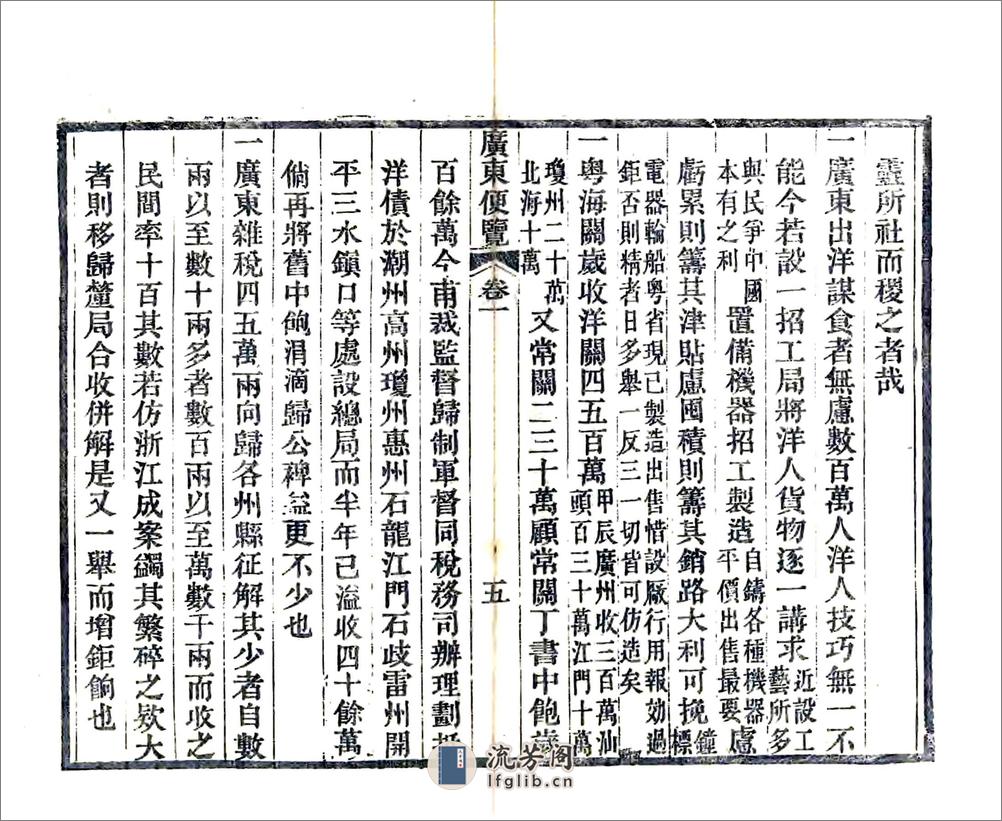 靈所社而稷之者哉
一廣東出洋謀食者無慮數百萬人洋人技巧無一不
能今若設一招工局將洋人貨物逐一講求近設工藝所多
與民爭中國本有之利置備機器招工製造自鑄各種機器平價出售最要慮
虧累則籌其津貼慮囤積則籌其銷路大利可挽鐘標
電器輪船粵省現已製造出售惜設厰行用報効過
鉅否則精者日多舉一反三一切皆可仿造矣
一粵海關歲收洋關四五百萬甲辰廣州收三百萬汕頭百三十萬江門十萬
瓊州二十萬北海十萬又常關二三十萬顧常關丁書中飽歲
廣東便覽 卷一 五
百餘萬今甫裁監督歸制軍督同稅務司辦理劃抵
洋債於潮州高州瓊州惠州石龍江門石歧雷州開
平三水鎮口等處設總局而半年己溢收四十餘萬
倘再將舊中飽涓滴歸公裨益更不少也
一廣東雜稅四五萬兩向歸各州縣征解其少者自數
兩以至數十兩多者數百兩以至萬數千兩而收之
民間率十百其數若仿浙江成案蠲其繁碎之欵大
者則移歸釐局合收併解是又一舉而增鉅餉也
流芳阁
lfglib.cn